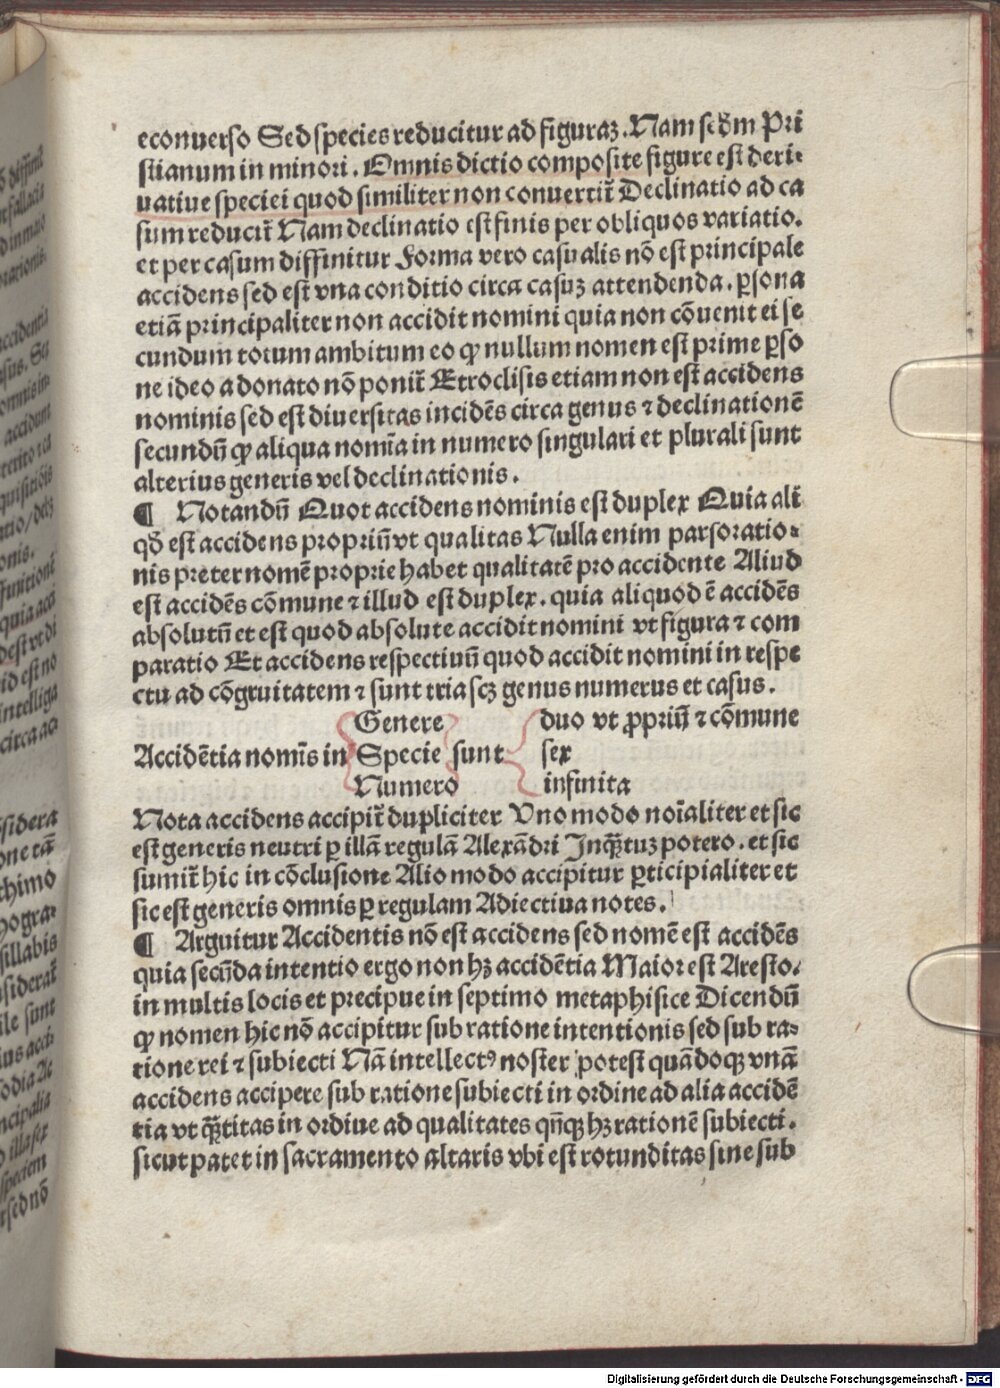 econuerso Sed species reducitur ad figuraꝫ. Nam scd̄m Pri
stianum in minori. Omnis dictio composite figure est deri⸗
uatiue speciei quod similiter non conuertit̄ Declinatio ad ca
sum reducit̄ Nam declinatio est finis per obliquos variatio.
et per casum diffinitur Forma vero casualis nō est principale
accidens sed est vna conditio circa casuꝫ attendenda. ꝑsona
etiā principaliter non accidit nomini quia non cōuenit ei se
cundum totum ambitum eo ꝙ nullum nomen est prime ꝑso
ne ideo a donato nō ponit̄ Etroclisis etiam non est accidens
nominis sed est diuersitas incidēs circa genus ⁊ declinationē
secundū ꝙ aliqua nomīa in numero singulari et plurali sunt
alterius generis vel declinationis.
¶ Notandū Quot accidens nominis est duplex Quia ali
qd̄ est accidens propriū vt qualitas Nulla enim pars oratio⸗
nis preter nomē proprie habet qualitatē pro accidente Aliud
est accidēs cōmune ⁊ illud est duplex. quia aliquod ē accidēs
absolutū et est quod absolute accidit nomini vt figura ⁊ com
paratio Et accidens respectiuū quod accidit nomini in respe
ctu ad cōgruitatem ⁊ sunt tria scꝫ genus numerus et casus.
Genere duo vt ꝓpriū ⁊ cōmune
Accidētia nomīs in Specie sunt sex
Numero infinita
Nota accidens accipit̄ dupliciter Vno modo noīaliter et sic
est generis neutri ꝑ illā regulā Alexādri Inqᷓtuꝫ potero. et sic
sumit̄ hic in cōclusione Alio modo accipitur ꝑticipialiter et
sic est generis omnis ꝑ regulam Adiectiua notes.
¶ Arguitur Accidentis nō est accidens sed nomē est accidēs
quia secūda intentio ergo non hꝫ accidētia Maior est Aresto.
in multis locis et precipue in septimo metaphisice Dicendū
ꝙ nomen hic nō accipitur sub ratione intentionis sed sub ra⸗
tione rei ⁊ subiecti Nā intellectꝰ noster potest quādoqꝫ vnā
accidens accipere sub ratione subiecti in ordine ad alia accidē
tia vt qᷓtitas in ordiue ad qualitates qn̄qꝫ hꝫ rationē subiecti.
sicut patet in sacramento altaris vbi est rotunditas sine sub
Digitalisierung gefördert durch die Deutsche Forschungsgemeinschaft - DFG